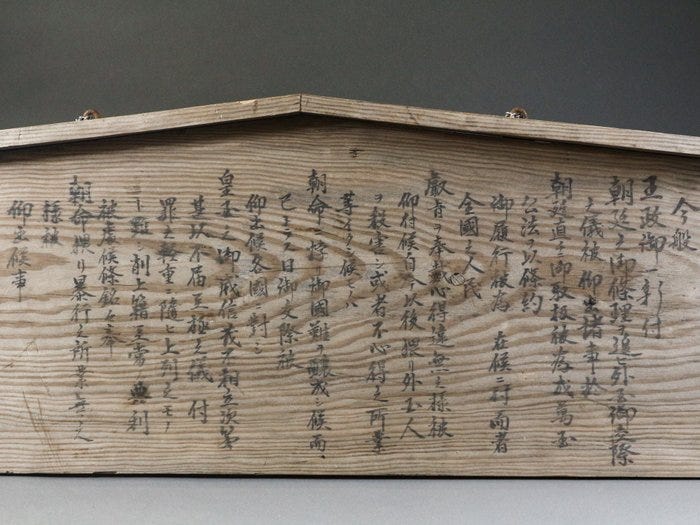 今般
王政御一新ニ付
朝廷之御條理ヲ追ヒ外国御交際
之儀被 仰出諸事於
朝廷直ニ御取扱被為成萬国
公法ヲ以條約
御履行被為 在候ニ付而者
全國之人民
叡旨ヲ奉戴心得違無之様被
仰付候自今以後猥リニ外国人
ヲ殺害シ或者不心得之所業
等イタシ候モノハ
朝命ニ悖リ御國難ヲ醸成シ候而
已ナラス一旦御交際被
仰出候各國ニ對シ
皇国之御威信義不相立次第
甚以不届至極之儀ニ付
罪之軽重ニ隨ヒ士列之モノ
ト雖モ削士籍至當之典刑
被處候條銘々奉
朝命猥リニ暴行之所業無之
様被
仰出候事